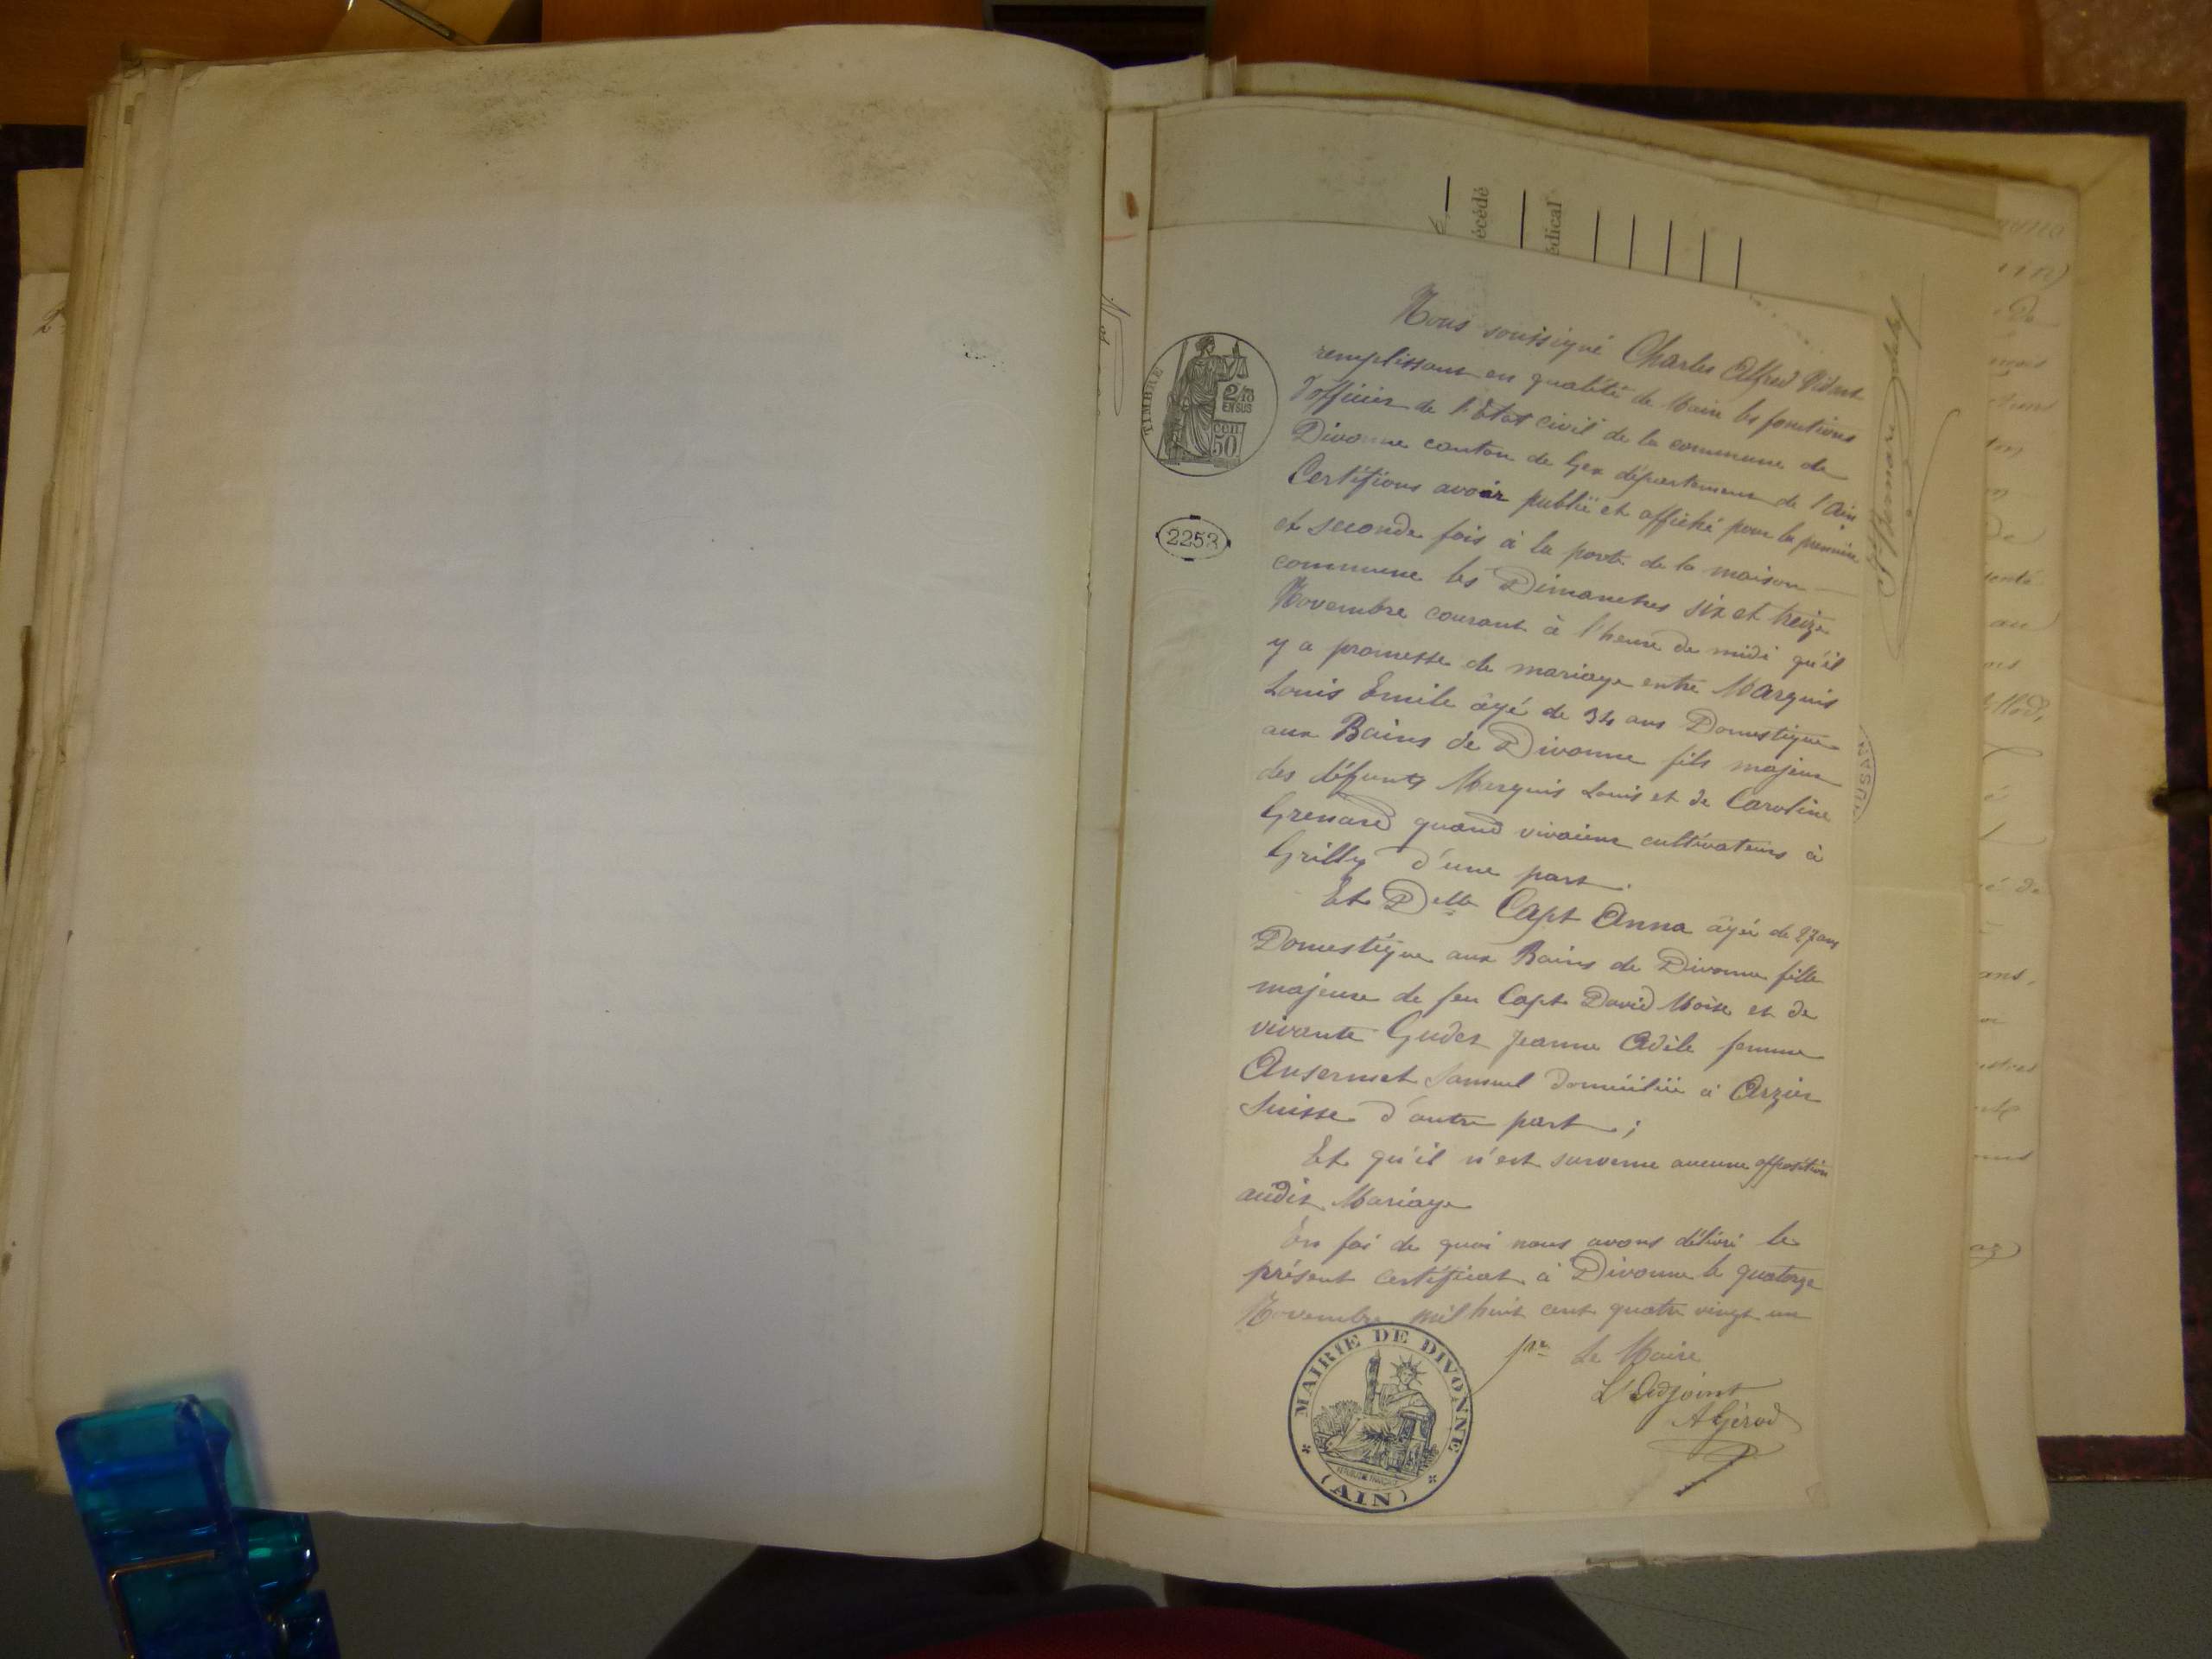 écédé
édical
Nous soussigné Charles Alfred
remplissant en qualité de Maire les fonctions
d'officier de l'Etat civil de la commune de
Divonne canton de Gex département de l'Ain
Certifions avoir publié et affiché pour la première
et seconde fois à la porte de la maison
commune les Dimanches six et treize
Novembre courant à l'heure de midi qu'il
y a promesse de mariage entre Marquis
Louis Emile âgé de 34 ans Domestique
aux Bains de Divonne fils majeur
des défunts Marquis Louis et de Caroline
Grenard quand vivaient cultivateurs à
Grilly d'une part.
Et Delle Capt Anna âgée de 27 ans
Domestique aux Bains de Divonne fille
majeure de feu Capt David Moïse et de
vivante Gudet Jeanne Adèle femme
Ansermet Samuel domicilié à Arzier
Suisse d'autre part ;
Et qu'il n'est survenu aucune opposition
audit Mariage
En foi de quoi nous avons délivré le
présent certificat à Divonne le quatorze
Novembre mil huit cent quatre vingt un
pr Le Maire
L'Adjoint
A Gérod
TIMBRE
2/10
EN SUS
50 cen
2253
MAIRIE DE DIVONNE
(AIN)